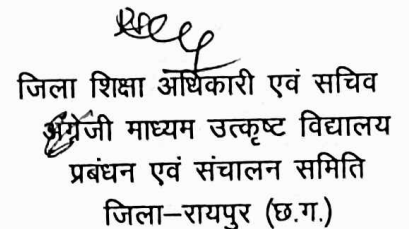 जिला शिक्षा अधिकारी एवं सचिव
अंग्रेजी माध्यम उत्कृष्ट विद्यालय
प्रबंधन एवं संचालन समिति
जिला–रायपुर (छ.ग.)